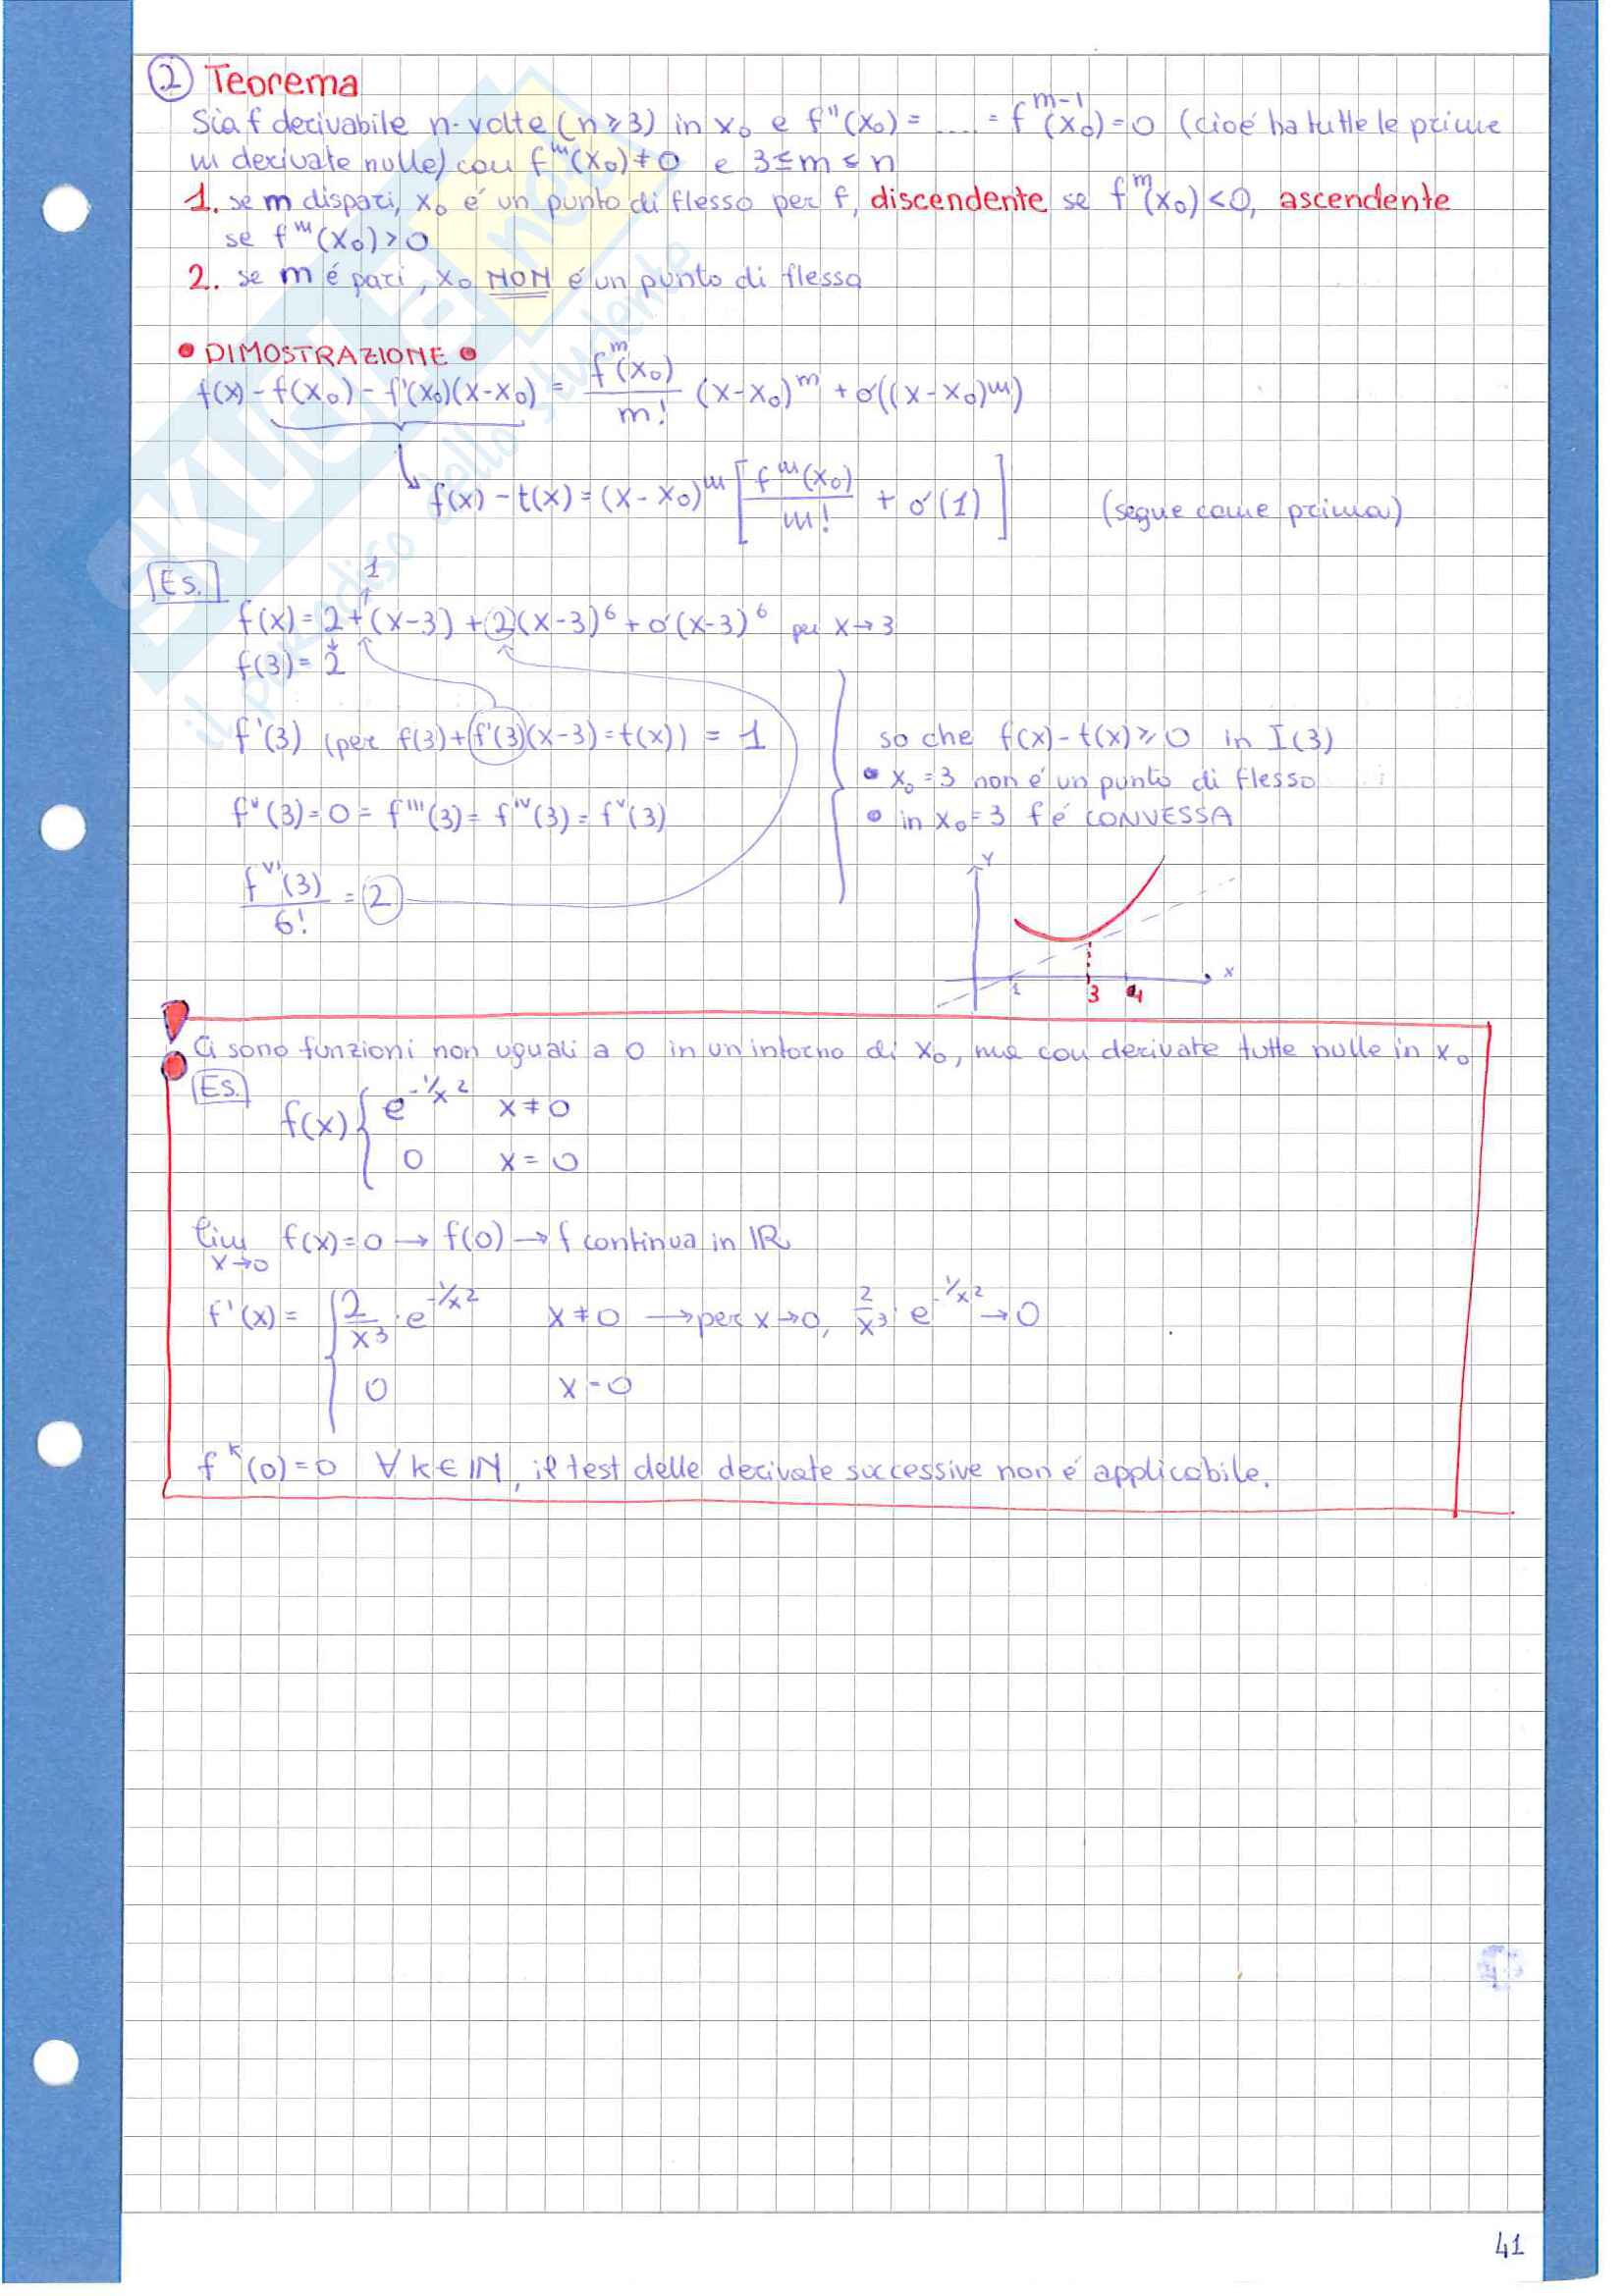 ② Teorema
Sia f derivabile n-volte (n≥3) in x₀ e f''(x₀) = .... = f^{m-1}(x₀)=0 (cioé ha tutte le prime
m derivate nulle) con f^m(x₀)≠0 e 3≤m≤n
1. se m dispari, x₀ é un punto di flesso per f, discendente se f^m(x₀)<0, ascendente
se f^m(x₀)>0
2. se m é pari, x₀ NON é un punto di flesso
• DIMOSTRAZIONE •
f(x) - f(x₀) - f'(x₀)(x-x₀) = f^m(x₀)/m! (x-x₀)^m + o((x-x₀)^m)
f(x) - t(x) = (x-x₀)^m [f^m(x₀)/m! + o(1)] (segue come prima)
Es.
1
f(x) = 2+(x-3)+2(x-3)^6+o(x-3)^6 per x→3
f(3) = 2
f'(3) (per f(3)+f'(3)(x-3)=t(x)) = 1
so che f(x)-t(x)≥0 in I(3)
• x₀=3 non é un punto di flesso
f''(3)=0= f'''(3)= f^{IV}(3)= f^{V}(3)
• in x₀=3 f é CONVESSA
f^{VI}(3)/6! = 2
Y
x
1 3 4
Ci sono funzioni non uguali a 0 in un intorno di x₀, ma con derivate tutte nulle in x₀
Es.
f(x) { e^{-1/x²} x≠0
0 x=0
lim x→0 f(x)=0 → f(0) → f continua in ℝ
f'(x) = { 2/x³ · e^{-1/x²} x≠0 → per x→0, 2/x³ · e^{-1/x²} → 0
0 x=0
f^k(0)=0 ∀k∈ℕ, il test delle derivate successive non é applicabile.
41
SKUOLA.net
il paradiso dello studente